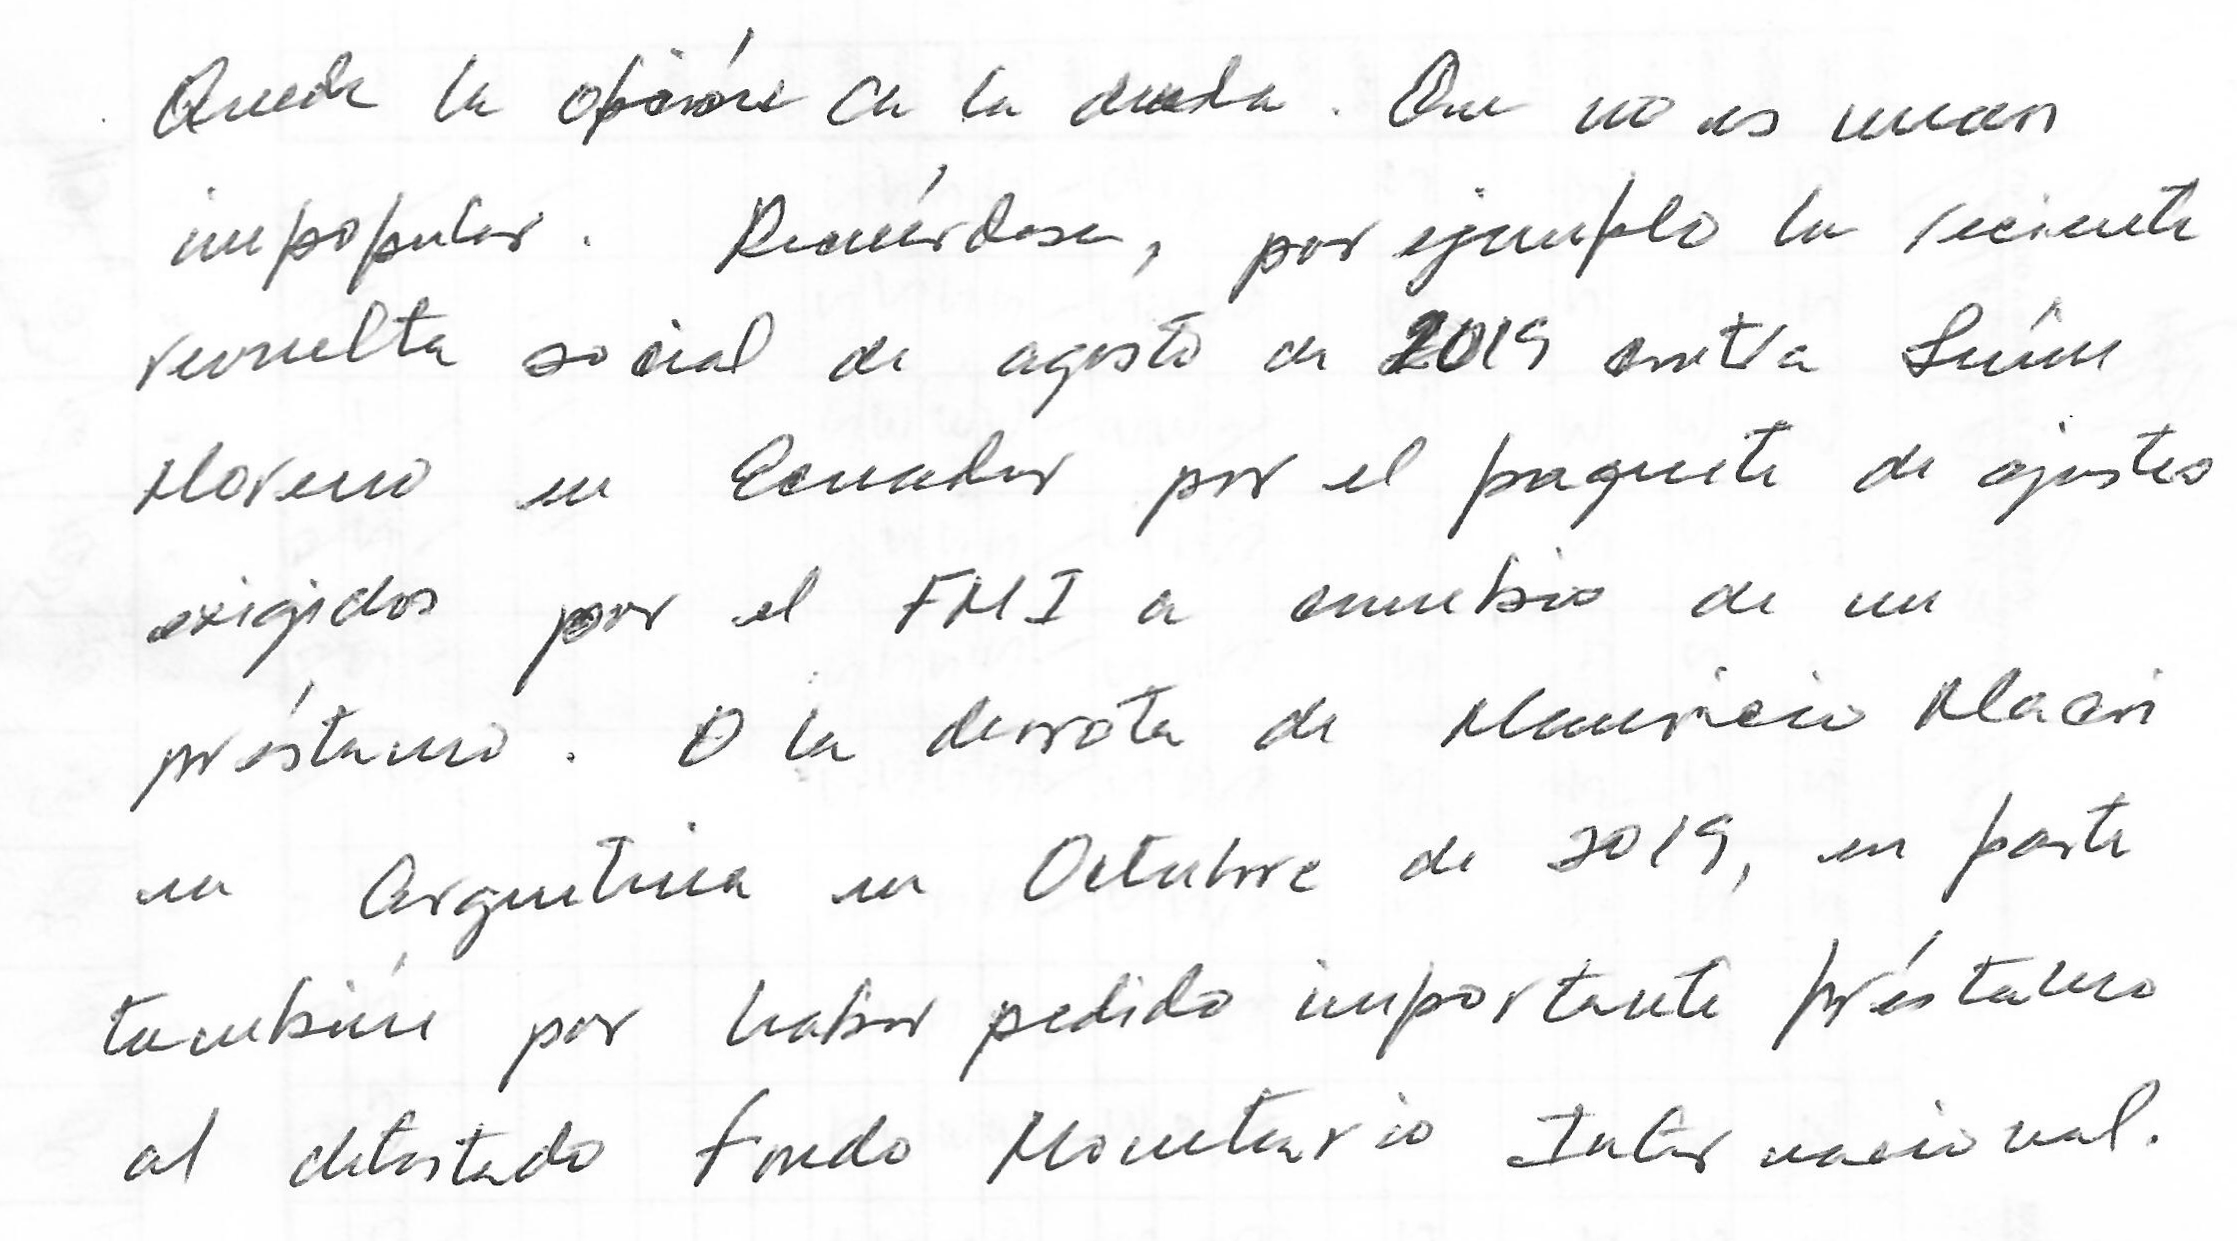 Queda la opción de la deuda. Que no es menos
impopular. Recuérdese, por ejemplo la reciente
revuelta social de agosto de 2019 contra Lenín
Moreno en Ecuador por el paquete de ajustes
exigidos por el FMI a cambio de un
préstamo. O la derrota de Mauricio Macri
en Argentina en Octubre de 2019, en parte
también por haber pedido importante préstamo
al detestado Fondo Monetario Internacional.